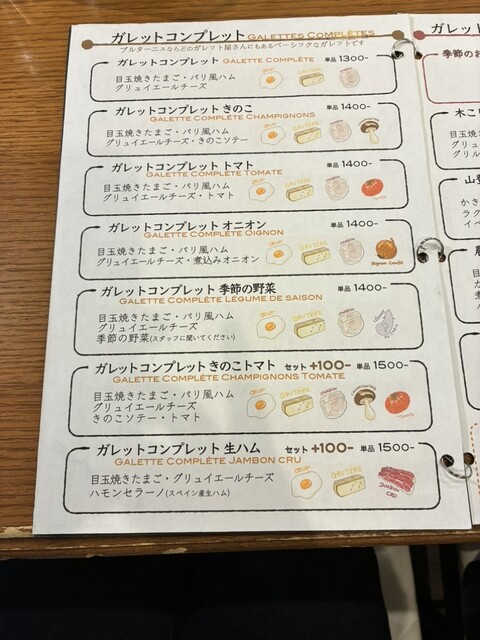 ガレットコンプレット GALETTES COMPLÈTES
ブルターニュならどのガレット屋さんにもあるベーシックなガレットです
ガレットコンプレット GALETTE COMPLÈTE 単品 1300-
目玉焼きたまご・パリ風ハム
グリュイエールチーズ
ガレットコンプレット きのこ 単品 1400-
GALETTE COMPLÈTE CHAMPIGNONS
目玉焼きたまご・パリ風ハム
グリュイエールチーズ・きのこソテー
ガレットコンプレット トマト 単品 1400-
GALETTE COMPLÈTE TOMATE
目玉焼きたまご・パリ風ハム
グリュイエールチーズ・トマト
ガレットコンプレット オニオン 単品 1400-
GALETTE COMPLÈTE OIGNON
目玉焼きたまご・パリ風ハム
グリュイエールチーズ・煮込みオニオン
ガレットコンプレット 季節の野菜 単品 1400-
GALETTE COMPLÈTE LÉGUME DE SAISON
目玉焼きたまご・パリ風ハム
グリュイエールチーズ
季節の野菜(スタッフに聞いてください)
ガレットコンプレット きのこトマト セット +100- 単品 1500-
GALETTE COMPLÈTE CHAMPIGNONS TOMATE
目玉焼きたまご・パリ風ハム
グリュイエールチーズ
きのこソテー・トマト
ガレットコンプレット 生ハム セット +100- 単品 1500-
GALETTE COMPLÈTE JAMBON CRU
目玉焼きたまご・グリュイエールチーズ
ハモンセラーノ(スペイン産生ハム)
OEUF GRUYÈRE JAMBON CRU
ガレット
季節のお
木こ
目玉焼
グリュ
グリル
山登
かき
ラク
イベ